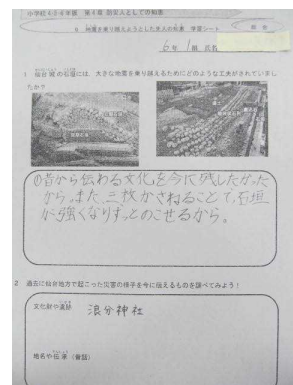 小学校4・5・6年版 第4章 防災人としての知恵
6 地震を乗り越えようとした先人の知恵 学習シート
6年 1組 氏名
1 仙台城の石垣には、大きな地震を乗り越えるためにどのような工夫がされていまし
たか?
○昔から伝わる文化を今に残したかった
から。また、三枚かさねることで、石垣
が強くなりずっとのこせるから。
2 過去に仙台地方で起こった災害の様子を今に伝えるものを調べてみよう!
文化財や遺跡 浪分神社
地名や伝承(昔話)